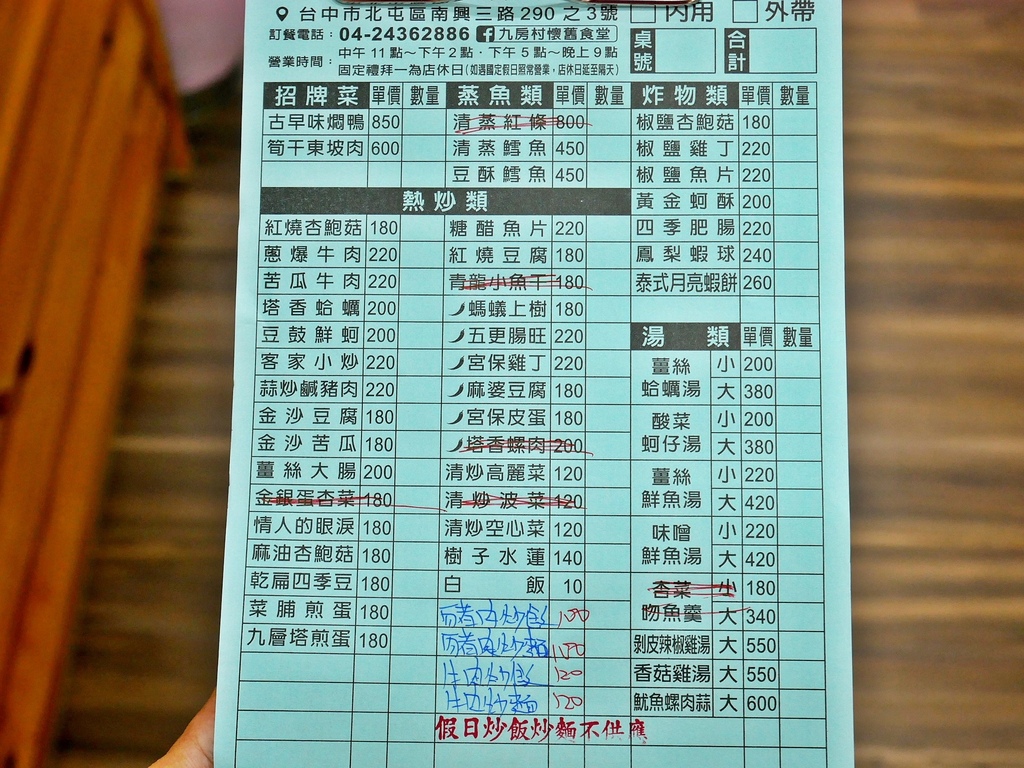 台中市北屯區南興三路290之3號 內用 外帶
訂餐電話：04-24362886 九房村懷舊食堂
營業時間：中午11點~下午2點．下午5點~晚上9點
固定禮拜一為店休日(如遇國定假日照常營業，店休日延至隔天)
桌號 合計
招牌菜 單價 數量
古早味燜鴨 850
筍干東坡肉 600
蒸魚類 單價 數量
清蒸紅條 800
清蒸鱈魚 450
豆酥鱈魚 450
熱炒類
紅燒杏鮑菇 180
蔥爆牛肉 220
苦瓜牛肉 220
塔香蛤蠣 200
豆鼓鮮蚵 200
客家小炒 220
蒜炒鹹豬肉 220
金沙豆腐 180
金沙苦瓜 180
薑絲大腸 200
金銀蛋杏菜 180
情人的眼淚 180
麻油杏鮑菇 180
乾扁四季豆 180
菜脯煎蛋 180
九層塔煎蛋 180
糖醋魚片 220
紅燒豆腐 180
青龍小魚干 180
螞蟻上樹 180
五更腸旺 220
宮保雞丁 220
麻婆豆腐 180
宮保皮蛋 180
塔香螺肉 200
清炒高麗菜 120
清炒波菜 120
清炒空心菜 120
樹子水蓮 140
白飯 10
豬肉炒飯 100
豬肉炒麵 100
牛肉炒飯 120
牛肉炒麵 120
假日炒飯炒麵不供應
炸物類 單價 數量
椒鹽杏鮑菇 180
椒鹽雞丁 220
椒鹽魚片 220
黃金蚵酥 200
四季肥腸 220
鳳梨蝦球 240
泰式月亮蝦餅 260
湯類 單價 數量
薑絲蛤蠣湯 小 200
大 380
酸菜蚵仔湯 小 200
大 380
薑絲鮮魚湯 小 220
大 420
味噌鮮魚湯 小 220
大 420
杏菜吻魚羹 小 180
大 340
剝皮辣椒雞湯 大 550
香菇雞湯 大 550
魷魚螺肉蒜 大 600